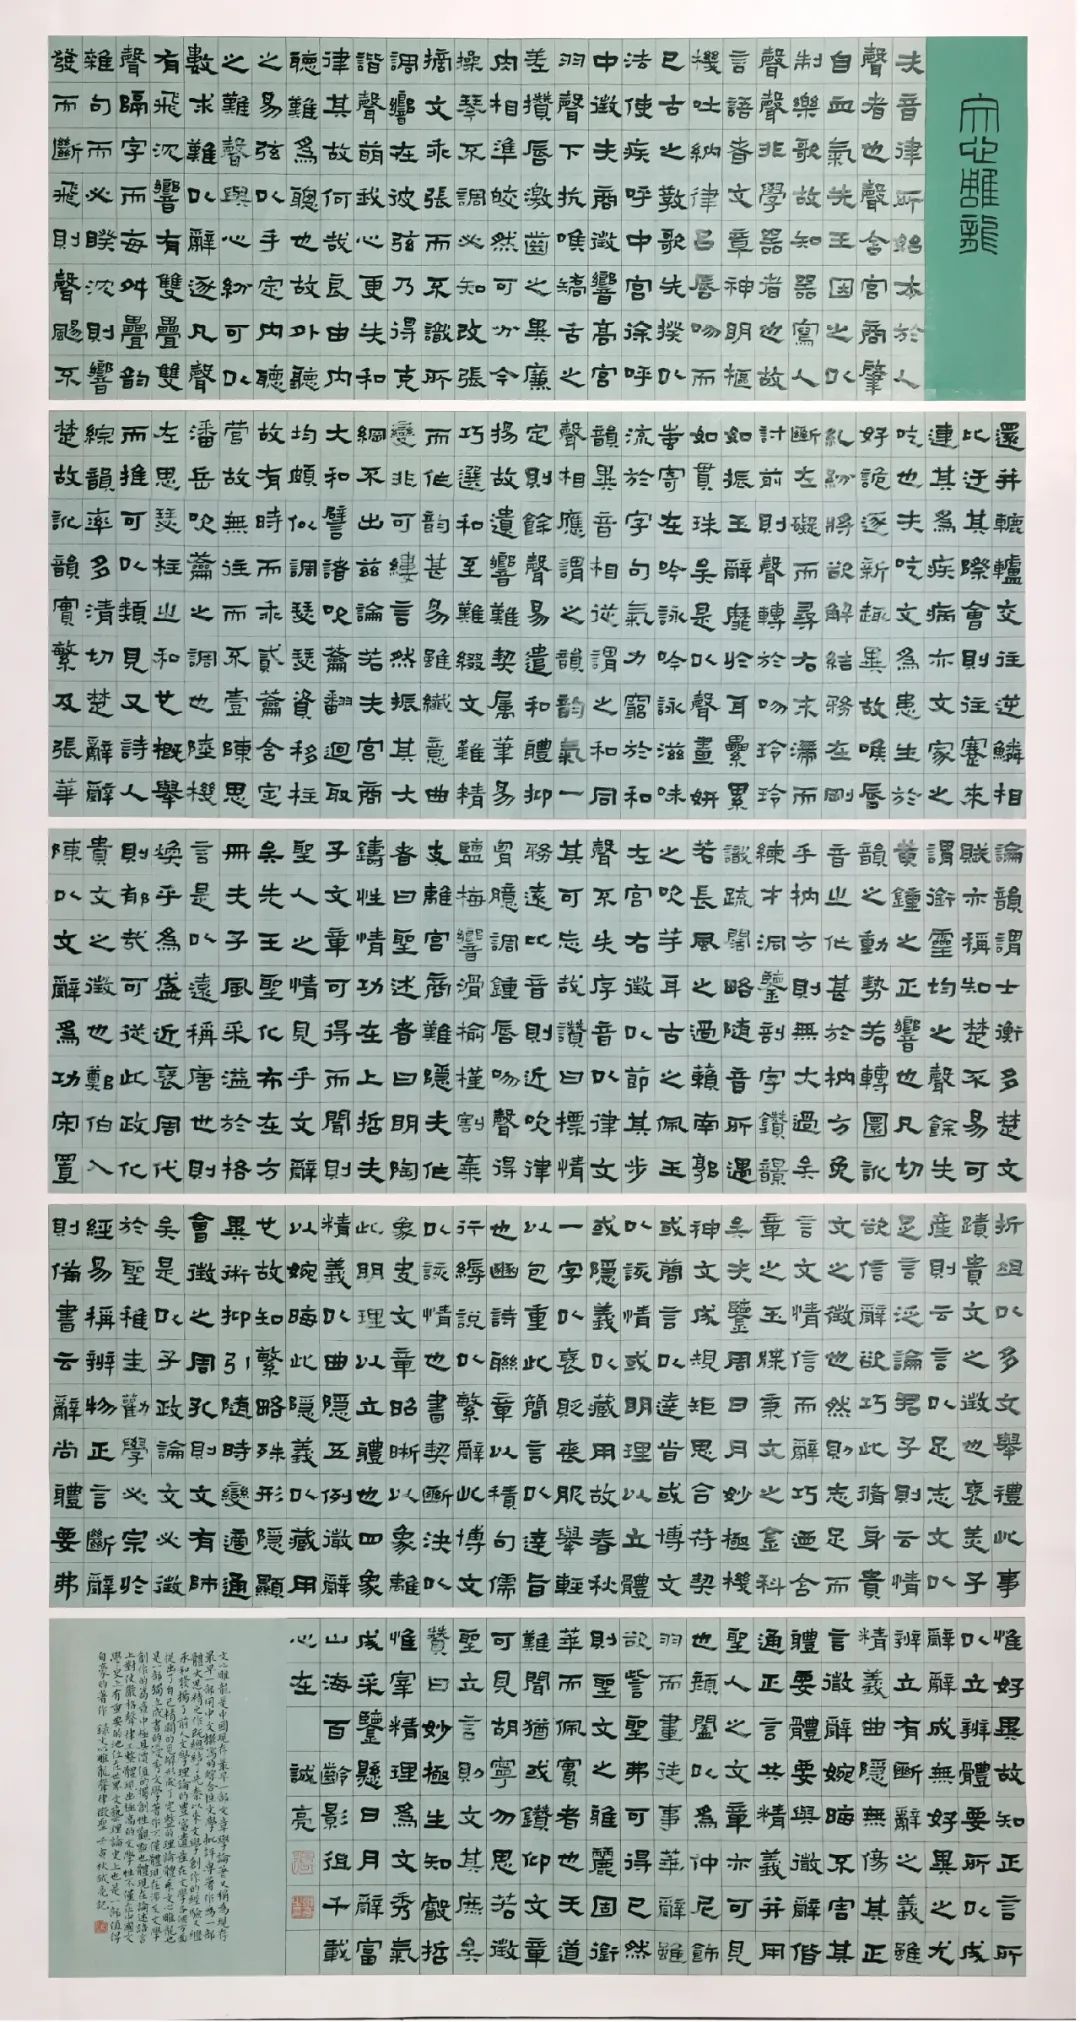 文心雕龍
夫音律所始本於人
聲者也聲含宮商肇
自血氣先王因之以
制樂歌故知器寫人
聲聲非學器者也故
言語者文章神明樞
機吐納律呂唇吻而
已古之教歌先揆以
法使疾呼中宮徐呼
中徵夫商徵響高宮
羽聲下抗喉矯舌之
差攢唇激齒之異廉
內相準皎然可分今
操琴不調必知改張
摘文乖張而不識所
調響在彼弦乃得克
諧聲萌我心更失和
律其故何哉良由內
聽難為聰也故外聽
之易弦以手定內聽
之難聲與心紛可以
數求難以辭逐凡聲
有飛沉響有雙疊雙
聲隔字而每舛疊韵
雜句而必睽沉則響
發而斷飛則聲颺不
還并轆轤交往逆鱗相
比迕其際會則往蹇來
連其為疾病亦文家之
吃也夫吃文為患生於
好詭逐新趣異故喉唇
糺紛將欲解結務在剛
斷左礙而尋右末滯而
討前則聲轉於吻玲玲
如振玉辭靡於耳纍累
如貫珠矣是以聲畫妍
蚩寄在吟詠吟詠滋味
流於字句氣力窮於和
韻異音相從謂之和同
聲相應謂之韻韵氣一
定則餘聲易遣和體抑
揚故遺響難契属筆易
巧選和至難綴文難精
而作韵甚易雖纖意曲
變非可縷言然振其大
綱不出茲論若夫宮商
大和譬諸吹籥翻迴取
均頗似調瑟瑟資移柱
故有時而乖貳籥含定
管故無往而不壹陳思
潘岳吹籥之調也陸機
左思瑟柱之和也概舉
而推可以類見又詩人
綜韻率多清切楚辭辭
楚故訛韻實繁及張華
論韻謂士衡多楚文
賦亦稱知楚不易可
謂銜靈均之聲餘失
黃鐘之正響也凡切
韻之動勢若轉圜訛
音之作甚於枘方免
乎枘方則無大過矣
練才洞鑒剖字鑽韻
識疏闊略隨音所遇
若長風之過籟南郭
之吹竽耳古之佩玉
左宮右徵以節其步
聲不失序音以律文
其可忘哉讚曰標情
務遠比音則近吹律
胷臆調鐘唇吻聲得
鹽梅響滑榆槿割棄
支離宮商難隱夫作
者曰聖述者曰明陶
鑄性情功在上哲夫
子文章可得而聞則
聖人之情見乎文辭
矣先王聖化布在方
冊夫子風采溢於格
言是以遠稱唐世則
煥乎為盛近褒周代
則郁哉可從此政化
貴文之徵也鄭伯入
陳以文辭為功宋置
折俎以多文舉禮此事
蹟貴文之徵也褒美子
產則云言以足志文以
足言泛論君子則云情
欲信辭欲巧此脩身貴
文之徵也然則志足而
言文情信而辭巧迺含
章之玉牒秉文之金科
矣夫鑒周日月妙極機
神文成規矩思合符契
或簡言以達旨或博文
以該情或明理以立體
或隱義以藏用故春秋
一字以褒貶喪服舉輕
以包重此簡言以達旨
也豳詩聯章以積句儒
行縟說以繁辭此博文
以該情也書契斷決以
象夬文章昭晰以象離
此明理以立體也四象
精義以曲隱五例徵辭
以婉晦此隱義以藏用
也故知繁略殊形隱顯
異術抑引隨時變適通
會徵之周孔則文有師
矣是以子政論文必徵
於聖稚圭勸學必宗於
經易稱辨物正言斷辭
則備書云辭尚體要弗
惟好異故知正言所
以立辨體要所以成
辭辭成無好異之尤
辨立有斷辭之義雖
精義曲隱無傷其正
言微辭婉晦不害其
體要體要與微辭偕
通正言共精義并用
聖人之文章亦可見
也顏闔以為仲尼飾
羽而畫徒事華辭雖
欲訾聖弗可得已然
則聖文之雅麗固銜
華而佩實者也天道
難聞猶或鑽仰文章
可見胡寧勿思若徵
聖立言則文其庶矣
贊曰妙極生知叡哲
惟宰精理為文秀氣
成采鑒懸日月辭富
山海百齡影徂千載
心在 誠亮